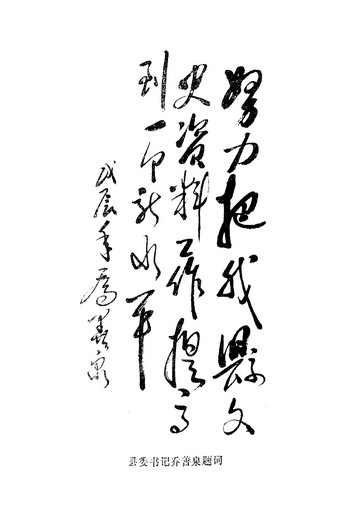 努力把我县文
史资料工作提高
到一个新水平
戊辰年 乔善泉
县委书记乔善泉题词